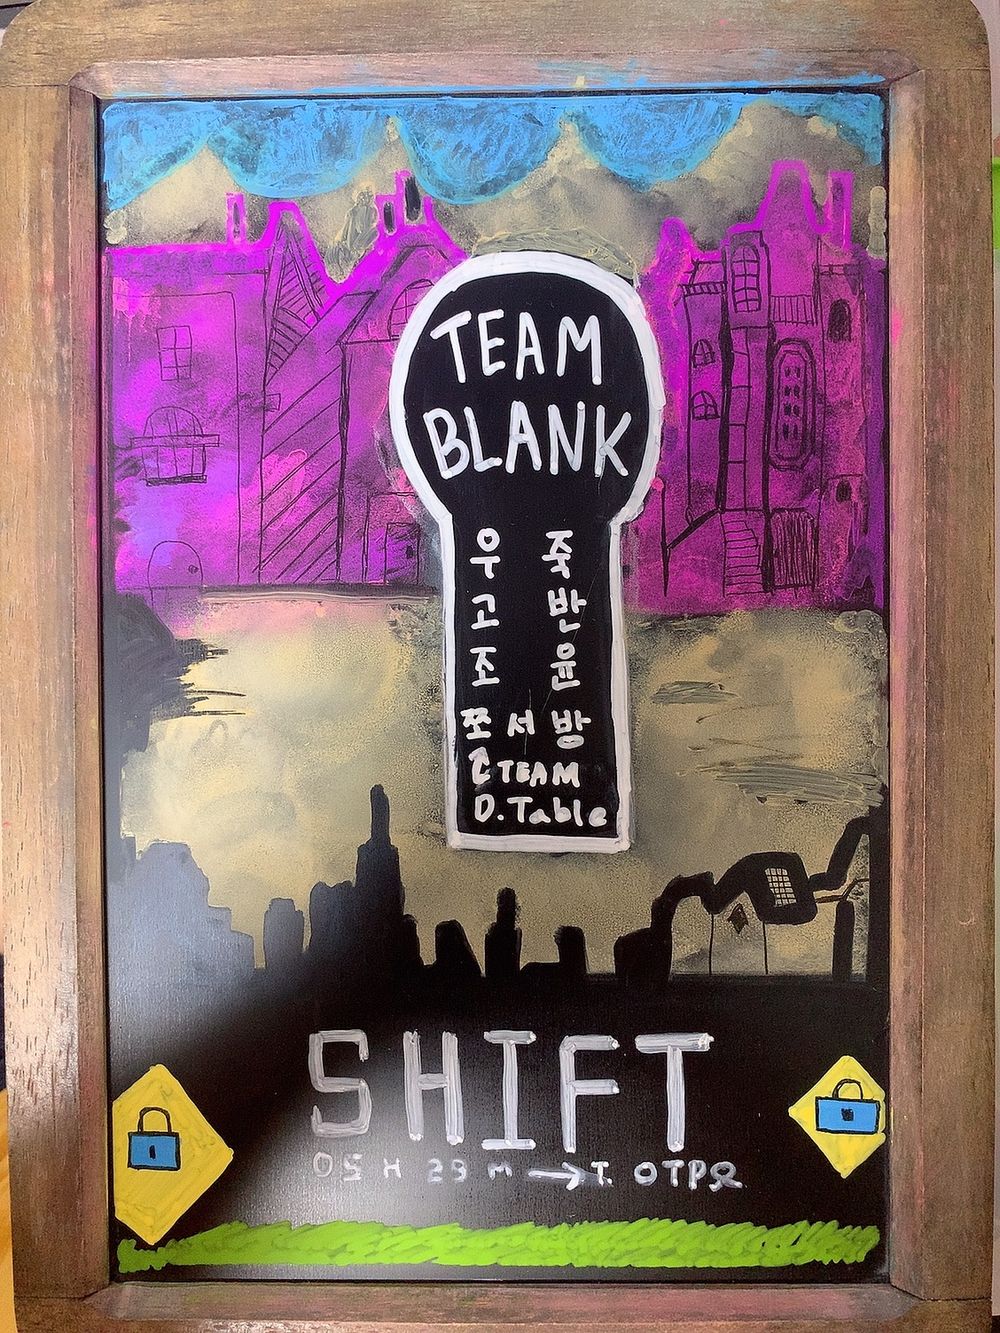 TEAM
BLANK
우 죽
고 반
조 윤
쪼 서 방
TEAM
D.Table
SHIFT
05H 23M → T. OTP요